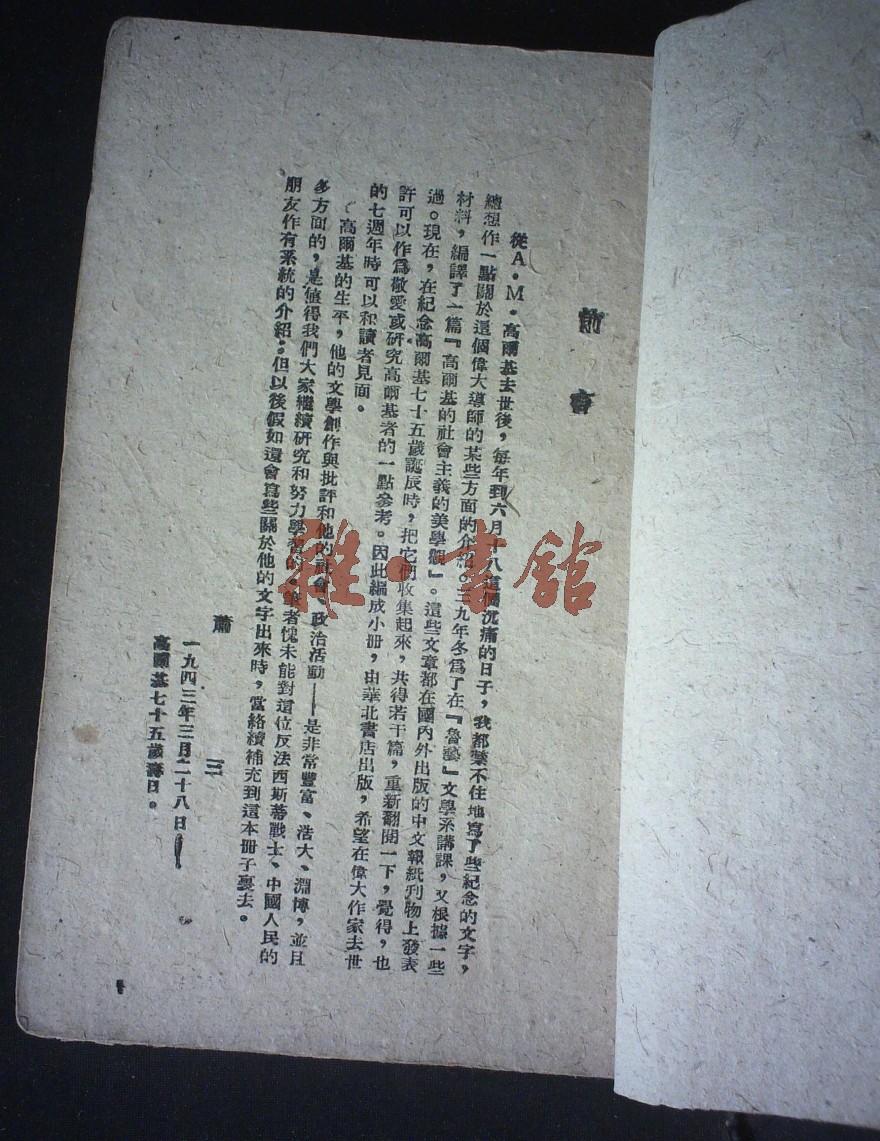 前言
從A·M·高爾基去世後，每年到六月十八這個沉痛的日子，我都禁不住地寫了些紀念的文字，
總想作一點關於這個偉大導師的某些方面的介紹。三九年冬爲了在『魯藝』文學系講課，又根據一些
材料，編譯了一篇『高爾基的社會主義的美學觀』。這些文章都在國內外出版的中文報紙刊物上發表
過。現在，在紀念高爾基七十五歲誕辰時，把它們收集起來，共得若干篇，重新翻閱一下，覺得，也
許可以作爲敬愛或研究高爾基者的一點參考。因此編成小册，由華北書店出版，希望在偉大作家去世
的七週年時可以和讀者見面。
高爾基的生平，他的文學創作與批評和他的社會、政治活動——是非常豐富、浩大、淵博，並且
多方面的，是値得我們大家繼續研究和努力學習的。筆者愧未能對這位反法西斯蒂戰士、中國人民的
朋友作有系統的介紹。但以後假如還會寫些關於他的文字出來時，當絡續補充到這本冊子裏去。
蕭三
一九四三年三月二十八日——
高爾基七十五歲壽日。
雅·書館